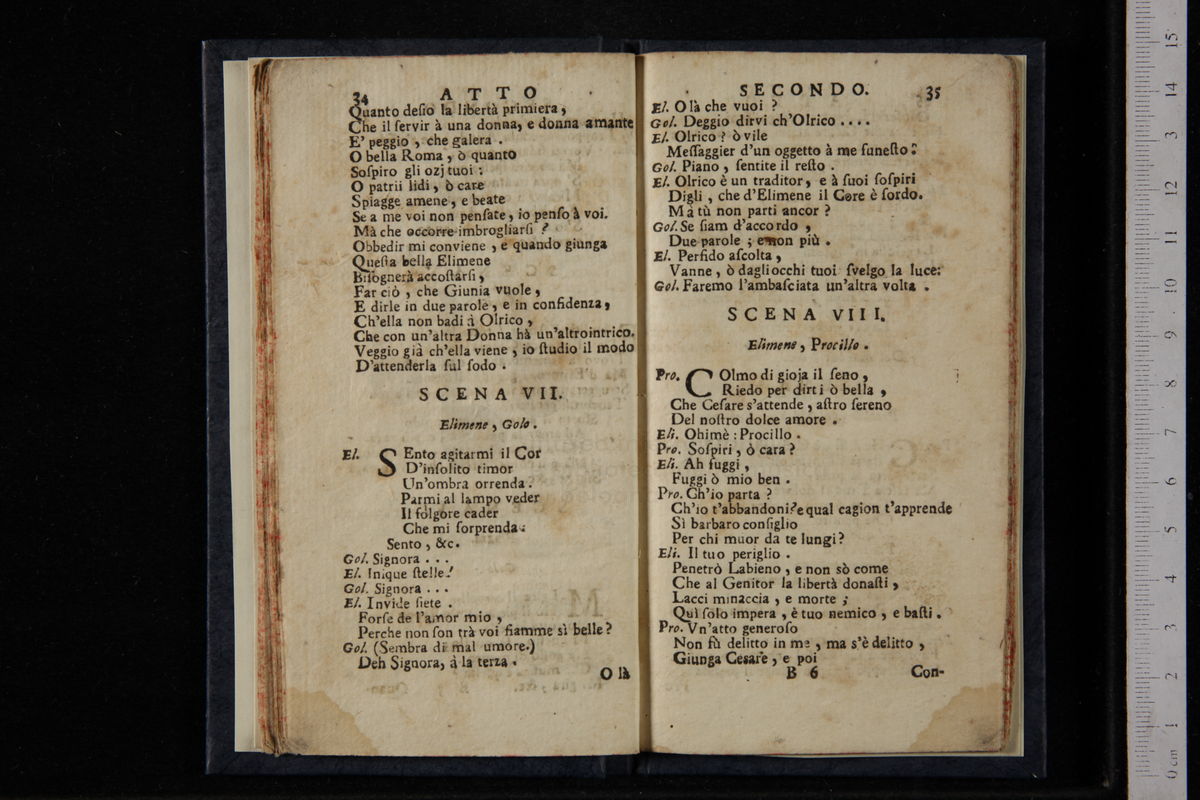 34 ATTO
Quanto desio la libertà primiera,
Che il servir à una donna, e donna amante
E' peggio, che galera.
O bella Roma, ò quanto
Sospiro gli ozj tuoi:
O patrii lidi, ò care
Spiagge amene, e beate
Se a me voi non pensate, io penso à voi.
Mà che occorre imbrogliarsi?
Obbedir mi conviene, e quando giunga
Questa bella Elimene
Bisognerà accostarsi,
Far ciò, che Giunia vuole,
E dirle in due parole, e in confidenza,
Ch'ella non badi à Olrico,
Che con un'altra Donna hà un'altrointrico.
Veggio già ch'ella viene, io studio il modo
D'attenderla sul sodo.
SCENA VII.
Elimene, Golo.
El. SEnto agitarmi il Cor
D'insolito timor
Un'ombra orrenda.
Parmi al lampo veder
Il folgore cader
Che mi sorprenda.
Sento, &c.
Gol. Signora...
El. Inique stelle!
Gol. Signora...
El. Invide siete.
Forse de l'amor mio,
Perche non son trà voi fiamme sì belle?
Gol. (Sembra di mal umore.)
Deh Signora, à la terza.
O là
SECONDO. 35
El. O là che vuoi?
Gol. Deggio dirvi ch'Olrico....
El. Olrico? ò vile
Messaggier d'un oggetto à me funesto:
Gol. Piano, sentite il resto.
El. Olrico è un traditor, e à suoi sospiri
Digli, che d'Elimene il Core è sordo.
Mà tù non parti ancor?
Gol. Se siam d'accordo,
Due parole; e non più.
El. Perfido ascolta,
Vanne, ò dagli occhi tuoi svelgo la luce:
Gol. Faremo l'ambasciata un'altra volta.
SCENA VIII.
Elimene, Procillo.
Pro. COlmo di gioja il seno,
Riedo per dirti ò bella,
Che Cesare s'attende, astro sereno
Del nostro dolce amore.
Eli. Ohimè: Procillo.
Pro. Sospiri, ò cara?
Eli. Ah fuggi,
Fuggi ò mio ben.
Pro. Ch'io parta?
Ch'io t'abbandoni? e qual cagion t'apprende
Sì barbaro consiglio
Per chi muor da te lungi?
Eli. Il tuo periglio.
Penetrò Labieno, e non sò come
Che al Genitor la libertà donasti,
Lacci minaccia, e morte;
Quì solo impera, è tuo nemico, e basti.
Pro. Un'atto generoso
Non fù delitto in me, ma s'è delitto,
Giunga Cesare, e poi
B 6 Con-
15
14
13
12
11
10
9
8
7
6
5
4
3
2
1
0 cm